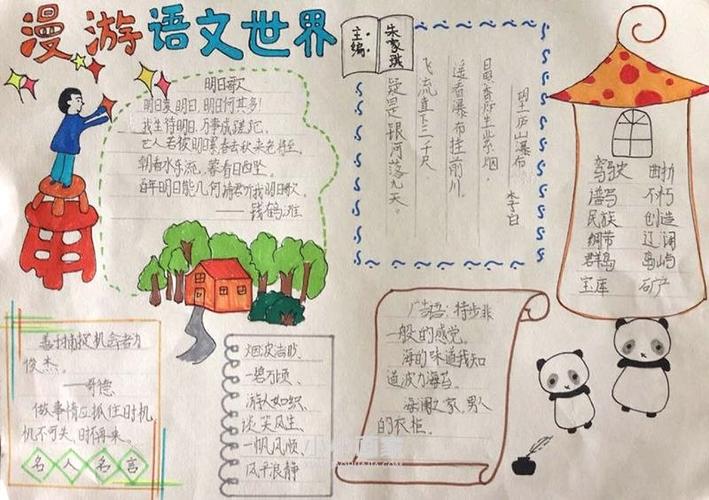 漫游语文世界
主编:
朱家琪
明日歌
明日复明日,明日何其多!
我生待明日,万事成蹉跎。
世人若被明日累,春去秋来老将至。
朝看水东流,暮看日西坠。
百年明日能几何?请君听我明日歌。
——钱鹤滩
望庐山瀑布
李白
日照香炉生紫烟,
遥看瀑布挂前川。
飞流直下三千尺,
疑是银河落九天。
驾驶 曲折
谱写 不朽
民族 创造
绸带 辽阔
群岛 岛屿
宝库 矿产
善于捕捉机会者为
俊杰。
——哥德
做事情应抓住时机
机不可失,时不再来。
名人名言
烟波浩渺、
一碧万顷、
游人如织、
谈笑风生、
一帆风顺、
风平浪静
广告语:特步,非
一般的感觉。
海的味道我知
道波力海苔。
海澜之家,男人
的衣柜。